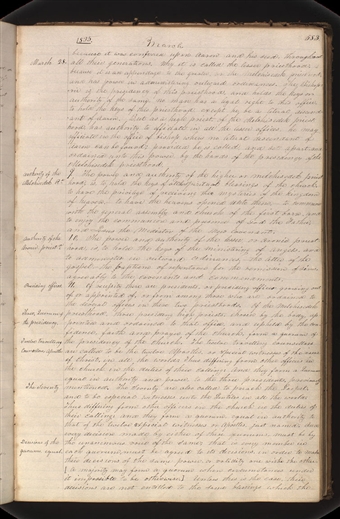 1835
March
583
March 28.
because it was conferred upon Aaron and his seed, throughout
all their generations. Why it is called the lesser priesthood, is
because it is an appendage to the greater, or the Melchisedek priesthood,
and has power in administering outward ordinances. The bishop-
ric is the presidency of this priesthood and holds the keys or
authority of the same. No man has a legal right to this office,
to hold the keys of this priesthood, except he be a literal descend-
ant of Aaron. But as a high priest, of the Melchisedek priest-
hood has authority to officiate in all the lesser offices, he may
officiate in the office of bishop when no literal descendant of
Aaron can be found; provided he is called, and set apart and
ordained unto this power by the hands of the presidency of the
Melchisedek priesthood.
authority of the
Melchisedek
9. The power and authority of the higher or Melchisedek priest-
hood, is to hold the keys of all the spiritual blessings of the church;
to have the privilege of receiving the mysteries of the kingdom
of heaven; to have the heavens opened unto them; to commune
with the general assembly and church of the first born; and
to enjoy the communion and presence of God the Father,
and Jesus the Mediator of the new covenant.
authority of the
10. The power and authority of the lesser, or Aaronic priest-
hood, is to hold the keys of the ministering of angels, and
to administer in outward ordinances, the letter of the
gospel, the baptism of repentance for the remission of sins,
agreeably to the covenants and commandments.
Presiding officers
11. Of necessity there are presidents, or presiding officers, growing out
of or appointed of, or from among those who are ordained to
the several offices in these two priesthoods. Of the Melchisedek
priesthood, three presiding high priests, chosen by the body, ap-
pointed and ordained to that office, and upheld by the con-
fidence, faith and prayer of the church, form a quorum of
the presidency of the church. The twelve travelling counsellors
are called to be the twelve Apostles, or special witnesses of the name
of Christ, in all the world: Thus differing from other officers in
the church in the duties of their calling. And they form a quorum
equal in authority and power to the three presidents, previously
The Seventy
mentioned. The Seventy are also called to preach the Gospel,
and to be especial witnesses unto the Gentiles in all the world.
Thus differing from other officers in the church in the duties of
their calling: And they form a quorum equal in authority to
that of the twelve especial witnesses or Apostles, just named. And
every decision made by either of these quorums, must be by
the unanimous voice of the same; that is, every member in
each quorum, must be agreed to its decisions, in order to make
their decisions of the same power or validity one with the other.
(A majority may form a quorum when circumstances render
it impossible to be otherwise) Unless this is the case, their
decisions are not entitled to the same blessings which the